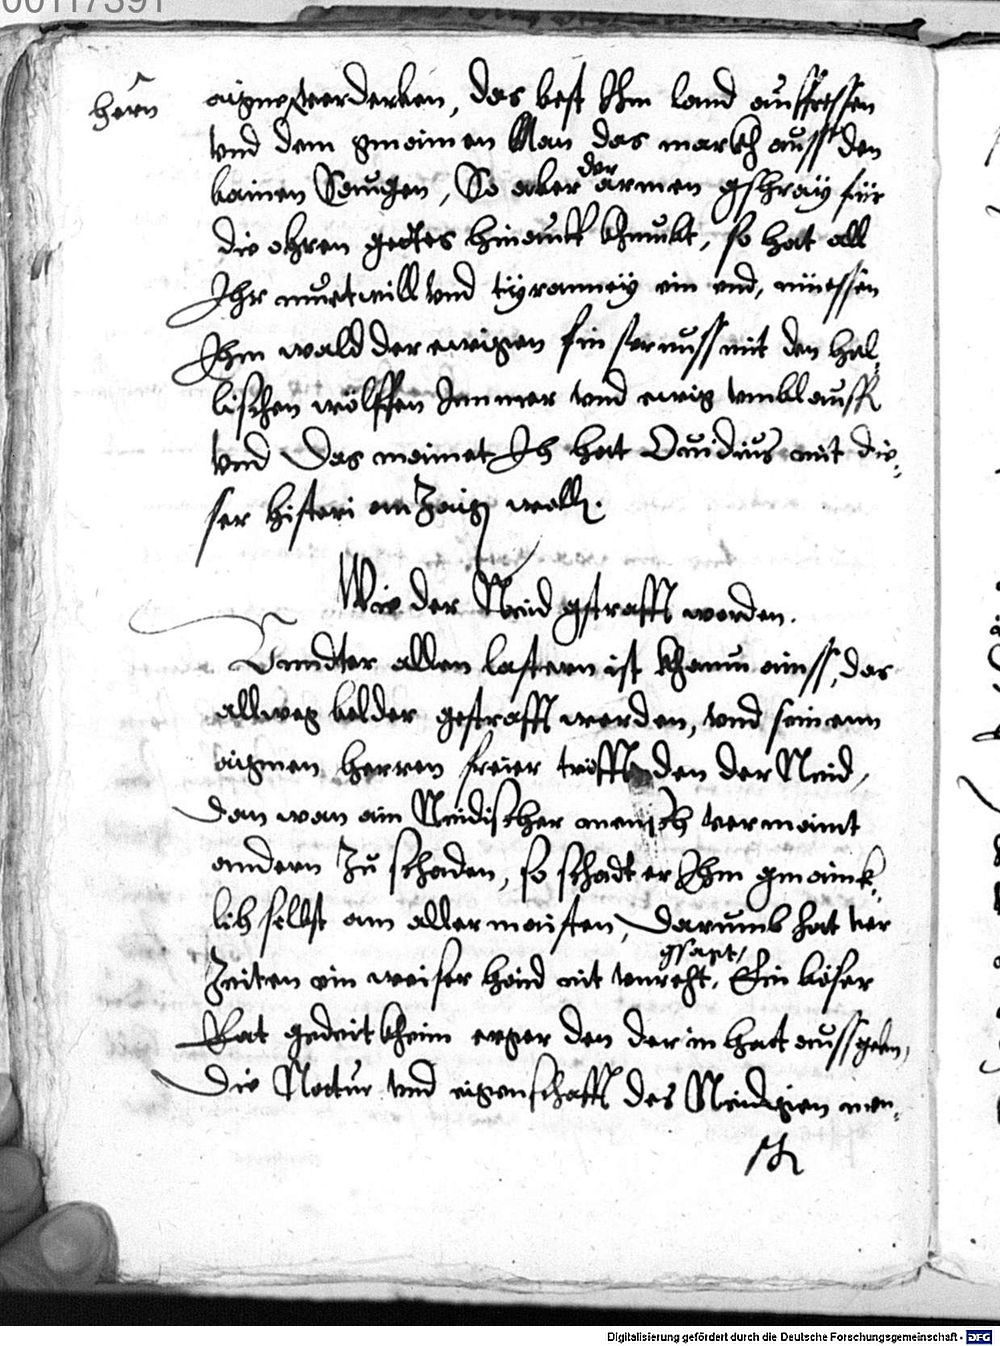 00117391
herrn
aigne verderben, das best Ihm land ausfressen
vnd dem gmainen Man das markh auss den
bainen Saugen, So aber der armen gschray für
die ohren gottes hinauff khumbt, so hat all
Ihr muetwill vnd tyranney ein end, müessen
Ihm wald der ewigen finsternuss mit den hel-
lischen wölffen Immer vnd ewig vmblauffn
vnd Das mainet Ich hat Ouidius mit die-
ser histori anzaign wolln.
Wie der Neid gstrafft worden.
Vundter allen lastern ist khaum ainss, das
allweg belder gestrafft werden, vnd seinem
aignen herren freier trifft den der Neid,
Dan wan ain Neidischer mensch vermaint
andern Zu schaden, so schadt er Ihm gmaink-
lich selbst am allermaisten, Darumb hat vor
Zeiten ein weiser haid nit vnrecht gsagt, Ein böser
Rat gedeit kheim erger den der in hatt aussgeben,
Die Natur vnd eigenschafft des Neidigen men-
sch
Digitalisierung gefördert durch die Deutsche Forschungsgemeinschaft - DFG